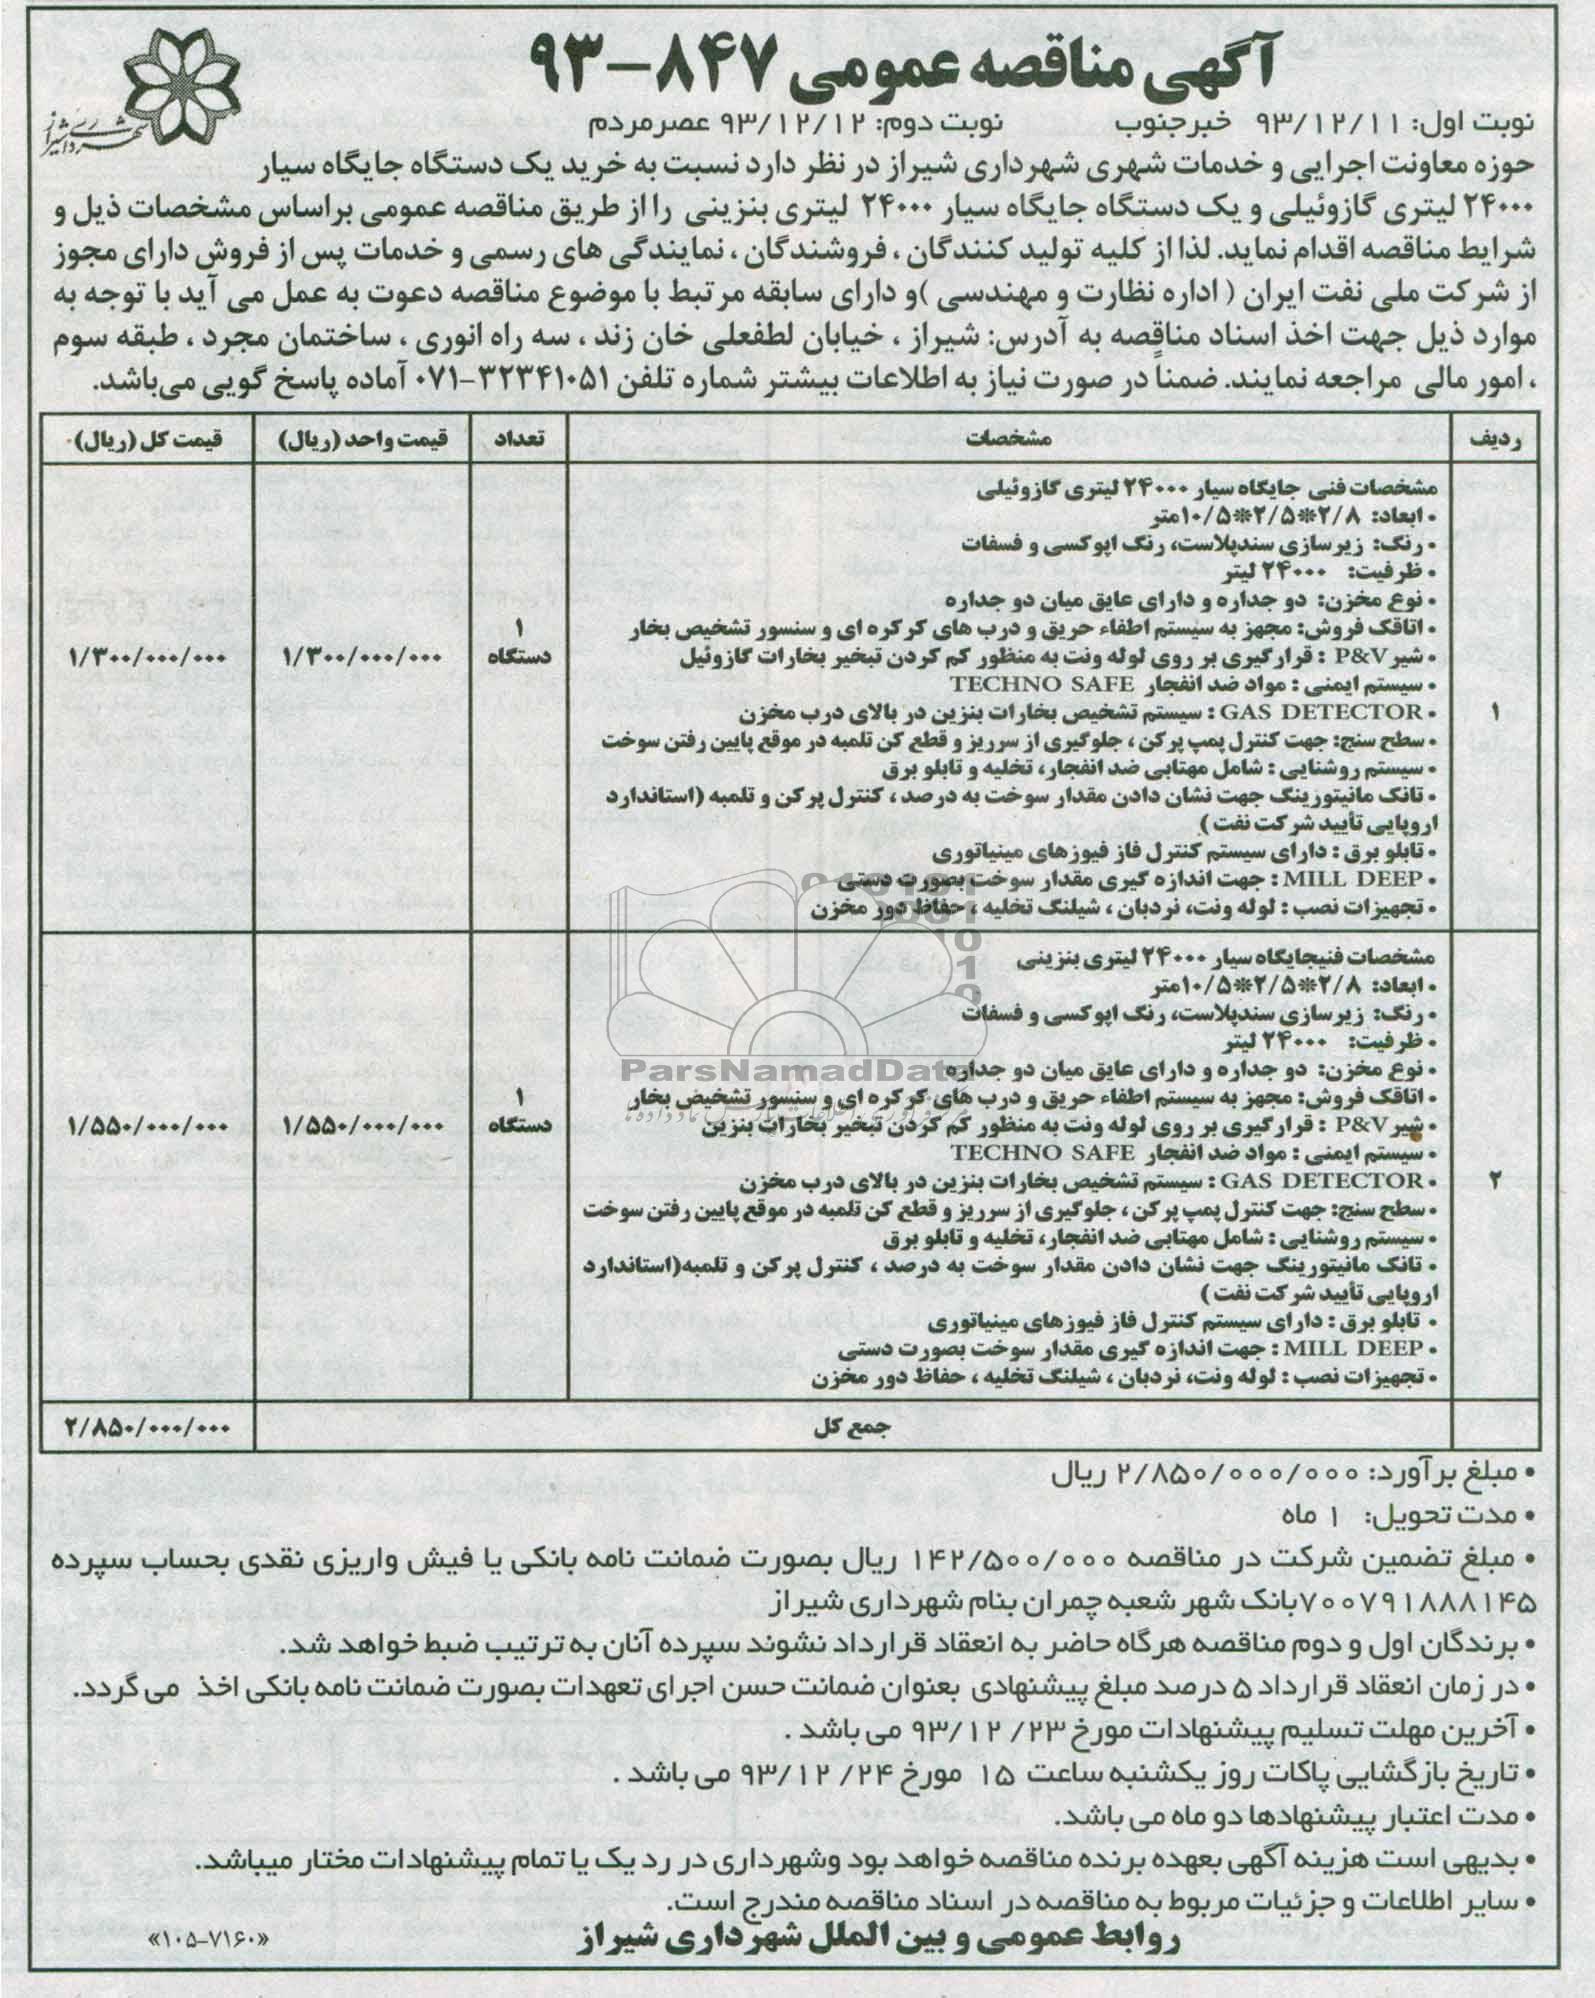 آگهی مناقصه عمومی ۸۴۷-۹۳
شهرداری شیراز
نوبت اول: ۹۳/۱۲/۱۱ خبرجنوب نوبت دوم: ۹۳/۱۲/۱۲ عصرمردم
حوزه معاونت اجرایی و خدمات شهری شهرداری شیراز در نظر دارد نسبت به خرید یک دستگاه جایگاه سیار
۲۴۰۰۰ لیتری گازوئیلی و یک دستگاه جایگاه سیار ۲۴۰۰۰ لیتری بنزینی را از طریق مناقصه عمومی براساس مشخصات ذیل و
شرایط مناقصه اقدام نماید. لذا از کلیه تولید کنندگان ، فروشندگان ، نمایندگی های رسمی و خدمات پس از فروش دارای مجوز
از شرکت ملی نفت ایران ( اداره نظارت و مهندسی )و دارای سابقه مرتبط با موضوع مناقصه دعوت به عمل می آید با توجه به
موارد ذیل جهت اخذ اسناد مناقصه به آدرس: شیراز ، خیابان لطفعلی خان زند ، سه راه انوری ، ساختمان مجرد ، طبقه سوم
، امور مالی مراجعه نمایند. ضمناً در صورت نیاز به اطلاعات بیشتر شماره تلفن ۳۲۳۴۱۰۵۱-۰۷۱ آماده پاسخ گویی می‌باشد.
ردیف مشخصات تعداد قیمت واحد (ریال) قیمت کل (ریال)
۱
مشخصات فنی جایگاه سیار ۲۴۰۰۰ لیتری گازوئیلی
• ابعاد: ۲/۸*۲/۵*۱۰/۵متر
• رنگ: زیرسازی سندپلاست، رنگ اپوکسی و فسفات
• ظرفیت: ۲۴۰۰۰ لیتر
• نوع مخزن: دو جداره و دارای عایق میان دو جداره
• اتاقک فروش: مجهز به سیستم اطفاء حریق و درب های کرکره ای و سنسور تشخیص بخار
• شیر P&V : قرارگیری بر روی لوله ونت به منظور کم کردن تبخیر بخارات گازوئیل
• سیستم ایمنی : مواد ضد انفجار TECHNO SAFE
• GAS DETECTOR : سیستم تشخیص بخارات بنزین در بالای درب مخزن
• سطح سنج: جهت کنترل پمپ پرکن ، جلوگیری از سرریز و قطع کن تلمبه در موقع پایین رفتن سوخت
• سیستم روشنایی : شامل مهتابی ضد انفجار، تخلیه و تابلو برق
• تانک مانیتورینگ جهت نشان دادن مقدار سوخت به درصد ، کنترل پرکن و تلمبه (استاندارد
اروپایی تأیید شرکت نفت )
• تابلو برق : دارای سیستم کنترل فاز فیوزهای مینیاتوری
• MILL DEEP : جهت اندازه گیری مقدار سوخت بصورت دستی
• تجهیزات نصب : لوله ونت، نردبان ، شیلنگ تخلیه ، حفاظ دور مخزن
۱
دستگاه
۱/۳۰۰/۰۰۰/۰۰۰
۱/۳۰۰/۰۰۰/۰۰۰
۲
مشخصات فنیجایگاه سیار ۲۴۰۰۰ لیتری بنزینی
• ابعاد: ۲/۸*۲/۵*۱۰/۵متر
• رنگ: زیرسازی سندپلاست، رنگ اپوکسی و فسفات
• ظرفیت: ۲۴۰۰۰ لیتر
• نوع مخزن: دو جداره و دارای عایق میان دو جداره
• اتاقک فروش: مجهز به سیستم اطفاء حریق و درب های کرکره ای و سنسور تشخیص بخار
• شیر P&V : قرارگیری بر روی لوله ونت به منظور کم کردن تبخیر بخارات بنزین
• سیستم ایمنی : مواد ضد انفجار TECHNO SAFE
• GAS DETECTOR : سیستم تشخیص بخارات بنزین در بالای درب مخزن
• سطح سنج: جهت کنترل پمپ پرکن ، جلوگیری از سرریز و قطع کن تلمبه در موقع پایین رفتن سوخت
• سیستم روشنایی : شامل مهتابی ضد انفجار، تخلیه و تابلو برق
• تانک مانیتورینگ جهت نشان دادن مقدار سوخت به درصد ، کنترل پرکن و تلمبه(استاندارد
اروپایی تأیید شرکت نفت )
• تابلو برق : دارای سیستم کنترل فاز فیوزهای مینیاتوری
• MILL DEEP : جهت اندازه گیری مقدار سوخت بصورت دستی
• تجهیزات نصب : لوله ونت، نردبان ، شیلنگ تخلیه ، حفاظ دور مخزن
۱
دستگاه
۱/۵۵۰/۰۰۰/۰۰۰
۱/۵۵۰/۰۰۰/۰۰۰
ParsNamadData
جمع کل ۲/۸۵۰/۰۰۰/۰۰۰
• مبلغ برآورد: ۲/۸۵۰/۰۰۰/۰۰۰ ریال
• مدت تحویل: ۱ ماه
• مبلغ تضمین شرکت در مناقصه ۱۴۲/۵۰۰/۰۰۰ ریال بصورت ضمانت نامه بانکی یا فیش واریزی نقدی بحساب سپرده
۷۰۰۷۹۱۸۸۸۱۴۵بانک شهر شعبه چمران بنام شهرداری شیراز
• برندگان اول و دوم مناقصه هرگاه حاضر به انعقاد قرارداد نشوند سپرده آنان به ترتیب ضبط خواهد شد.
• در زمان انعقاد قرارداد ۵ درصد مبلغ پیشنهادی بعنوان ضمانت حسن اجرای تعهدات بصورت ضمانت نامه بانکی اخذ می گردد.
• آخرین مهلت تسلیم پیشنهادات مورخ ۹۳/۱۲/۲۳ می باشد .
• تاریخ بازگشایی پاکات روز یکشنبه ساعت ۱۵ مورخ ۹۳/۱۲/۲۴ می باشد .
• مدت اعتبار پیشنهادها دو ماه می باشد.
• بدیهی است هزینه آگهی بعهده برنده مناقصه خواهد بود وشهرداری در رد یک یا تمام پیشنهادات مختار میباشد.
• سایر اطلاعات و جزئیات مربوط به مناقصه در اسناد مناقصه مندرج است.
روابط عمومی و بین الملل شهرداری شیراز
«۱۰۵-۷۱۶۰»